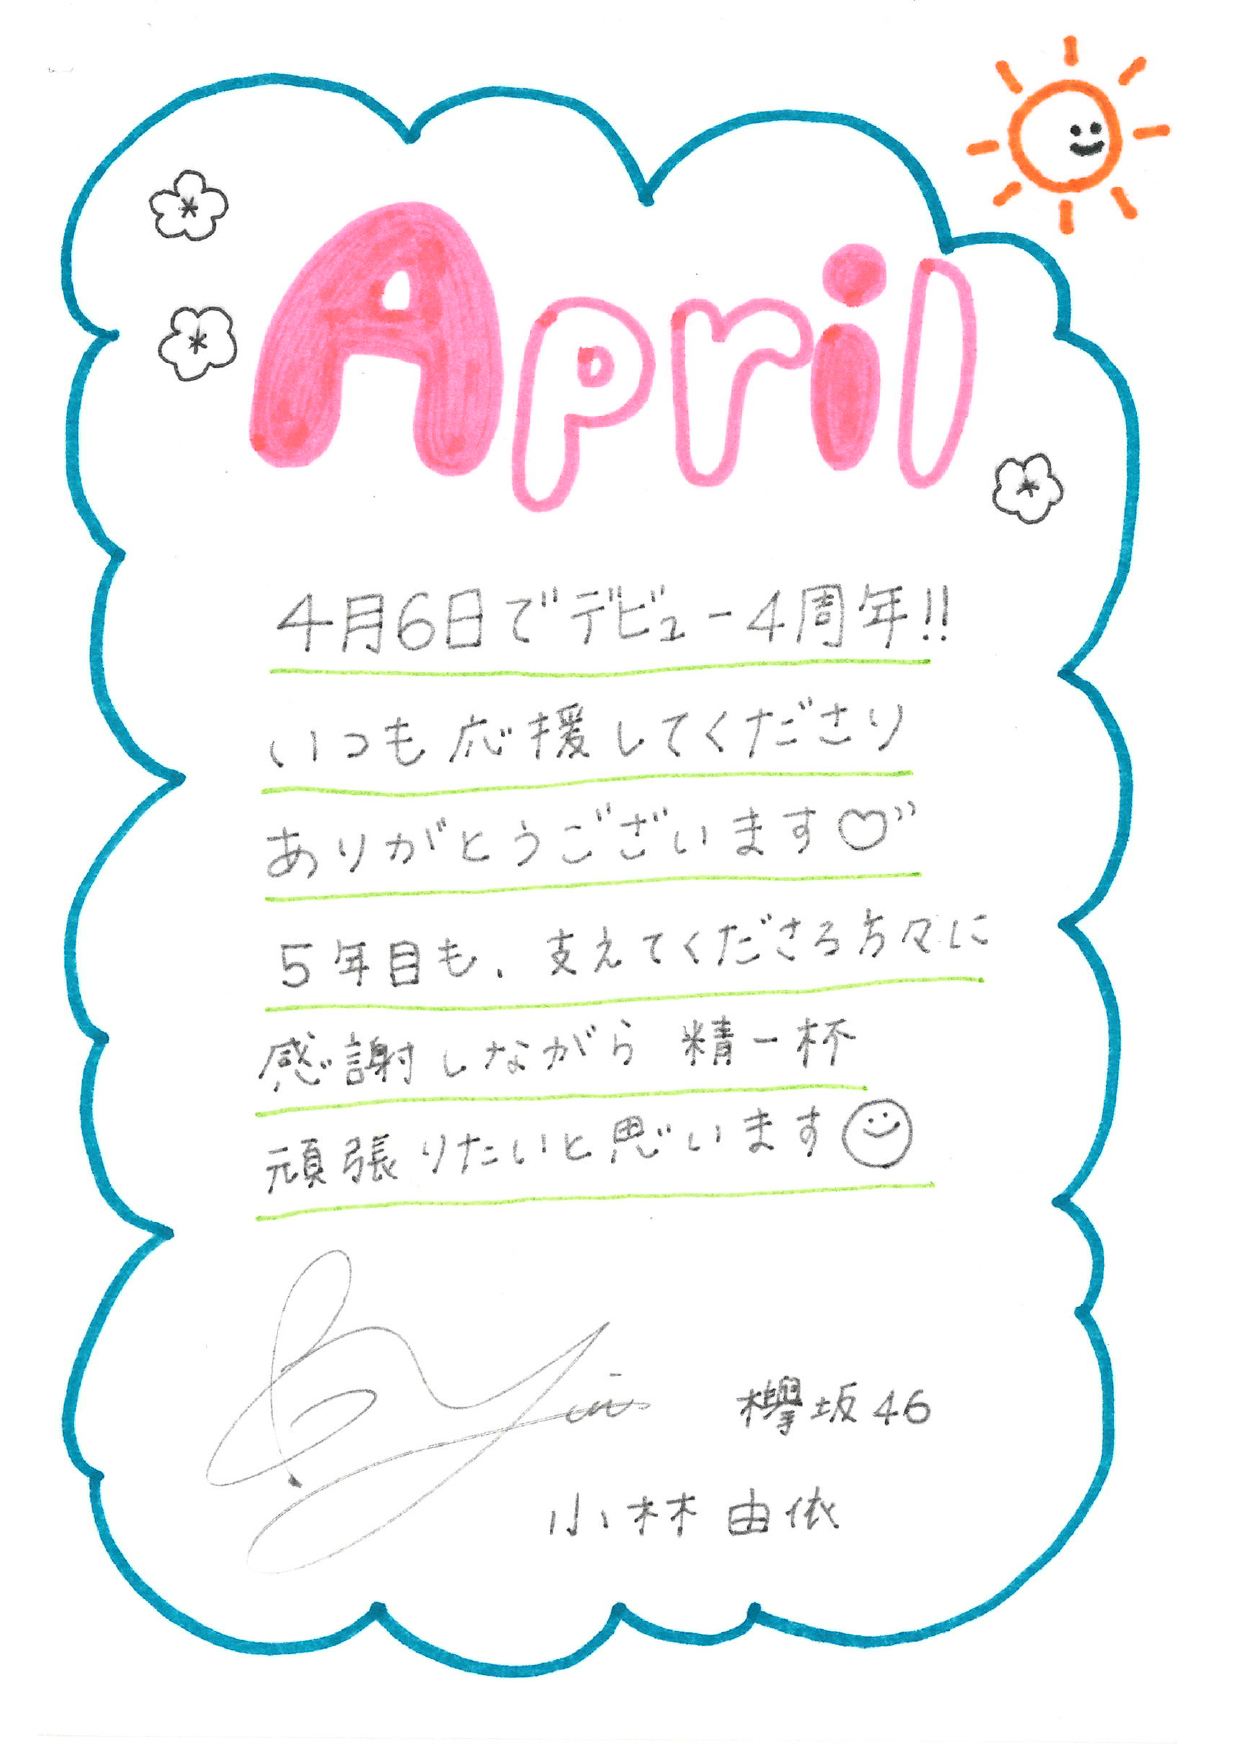 April
4月6日でデビュー4周年!!
いつも応援してくださり
ありがとうございます♡"
5年目も、支えてくださる方々に
感謝しながら 精一杯
頑張りたいと思います☺
欅坂46
小林 由依